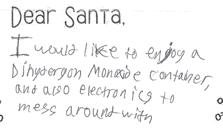 Dear Santa,
I would like to enjoy a
Dihydergon Monoxide Container,
and also electronics to
mess around with